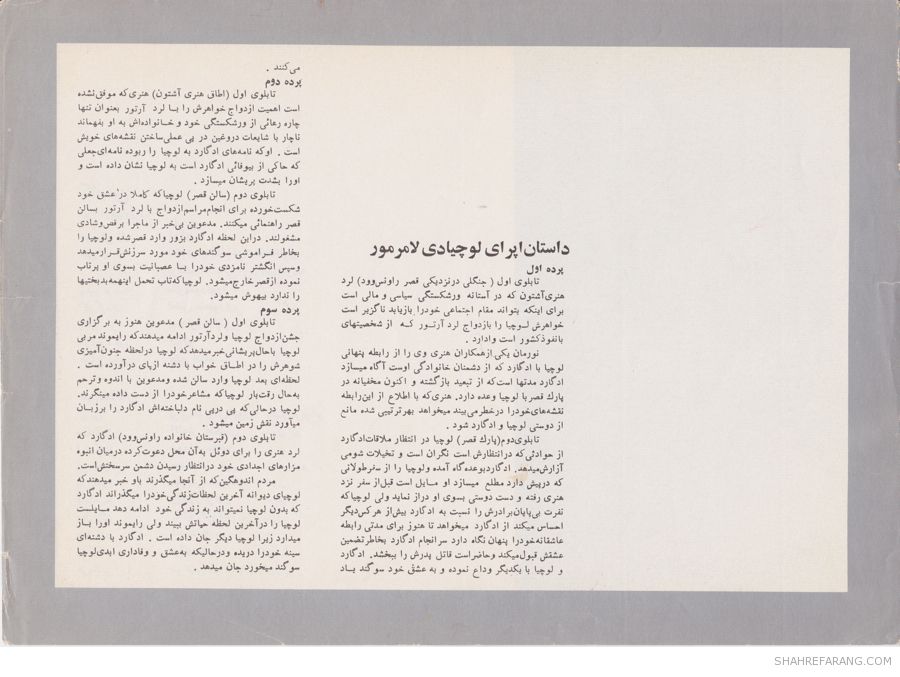 داستان اپرای لوچیادی لامرمور
پرده اول
تابلوی اول ( جنگلی درنزدیکی قصر راونس‌وود) لرد
هنری‌آشتون که در آستانه ورشکستگی سیاسی و مالی است
برای اینکه بتواند مقام اجتماعی خودرا بازیابد ناگزیر است
خواهرش لوچیا را بازدواج لرد آرتور که از شخصیتهای
بانفوذکشور است وادارد .
نورمان یکی ازهمکاران هنری وی را از رابطه پنهانی
لوچیا با ادگارد که از دشمنان خانوادگی اوست آگاه میسازد
ادگارد مدتها است‌که از تبعید بازگشته و اکنون مخفیانه در
پارك قصر با لوچیا وعده دارد. هنری‌که با اطلاع از این‌رابطه
نقشه‌های‌خودرا درخطرمی‌بیند میخواهد بهرترتیبی شده مانع
از دوستی لوچیا و ادگارد شود .
تابلوی‌دوم(پارك قصر) لوچیا در انتظار ملاقات‌ادگارد
از حوادثی‌که درانتظارش است نگران است و تخیلات شومی
آزارش‌میدهد. ادگاردبوعده‌گاه آمده ولوچیا را از سفرطولانی
که درپیش دارد مطلع میسازد او مایل است قبل‌از سفر نزد
هنری رفته و دست دوستی بسوی او دراز نماید ولی لوچیاکه
نفرت بی‌پایان‌برادرش را نسبت به ادگارد بیش‌از هرکس‌دیگر
احساس میکند از ادگارد میخواهد تا هنوز برای مدتی رابطه
عاشقانه‌خودرا پنهان نگاه دارد سرانجام ادگارد بخاطرتضمین
عشقش قبول‌میکند وحاضراست قاتل پدرش را ببخشد. ادگارد
و لوچیا با یکدیگر وداع نموده و به عشق خود سوگند یاد
می‌کنند .
پرده دوم
تابلوی اول (اطاق هنری آشتون) هنری‌که موفق‌نشده
است اهمیت ازدواج خواهرش را با لرد آرتور بعنوان تنها
چاره رهائی از ورشکستگی خود و خانواده‌اش به او بفهماند
ناچار با شایعات دروغین در پی عملی‌ساختن نقشه‌های خویش
است . اوکه نامه‌های ادگارد به لوچیا را ربوده نامه‌ای‌جعلی
که حاکی از بیوفائی ادگارد است به لوچیا نشان داده است و
اورا بشدت پریشان میسازد .
تابلوی دوم (سالن قصر) لوچیاکه کاملا در عشق خود
شکست‌خورده برای انجام‌مراسم‌ازدواج با لرد آرتور بسالن
قصر راهنمائی میکنند. مدعوین بی‌خبر از ماجرا برقص‌وشادی
مشغولند. دراین لحظه ادگارد بزور وارد قصرشده ولوچیا را
بخاطر فراموشی سوگندهای خود مورد سرزنش‌قرارمیدهد
وسپس انگشتر نامزدی خودرا با عصبانیت بسوی او پرتاب
نموده ازقصرخارج‌میشود. لوچیاکه‌تاب تحمل اینهمه‌بدبختیها
را ندارد بیهوش میشود.
پرده سوم
تابلوی اول ( سالن قصر ) مدعوین هنوز به برگزاری
جشن‌ازدواج لوچیا ولردآرتور ادامه میدهندکه رایموند مربی
لوچیا باحال‌پریشانی‌خبرمیدهدکه لوچیا درلحظه جنون‌آمیزی
شوهرش را در اطاق خواب با دشنه ازپای درآورده است .
لحظه‌ای بعد لوچیا وارد سالن شده ومدعوین با اندوه وترحم
به‌حال رقت‌بار لوچیاکه مشاعرخودرا از دست داده مینگرند.
لوچیا درحالی‌که پی درپی نام دلباخته‌اش ادگارد را برزبان
میآورد نقش زمین میشود .
تابلوی دوم (قبرستان خانواده راونس‌وود) ادگارد که
لرد هنری را برای دوئل به‌آن محل دعوت‌کرده درمیان انبوه
مزارهای اجدادی خود درانتظار رسیدن دشمن سرسختش‌است.
مردم اندوهگین‌که از آنجا میگذرند باو خبر میدهندکه
لوچیای دیوانه آخرین لحظات‌زندگی‌خودرا میگذراند ادگارد
که بدون لوچیا نمیتواند به زندگی خود ادامه دهد مایلست
لوچیا را درآخرین لحظه حیاتش ببیند ولی رایموند اورا باز
میدارد زیرا لوچیا دیگر جان داده است . ادگارد با دشنه‌ای
سینه خودرا دریده ودرحالیکه به‌عشق و وفاداری ابدی‌لوچیا
سوگند میخورد جان میدهد .
SHAHREFARANG.COM